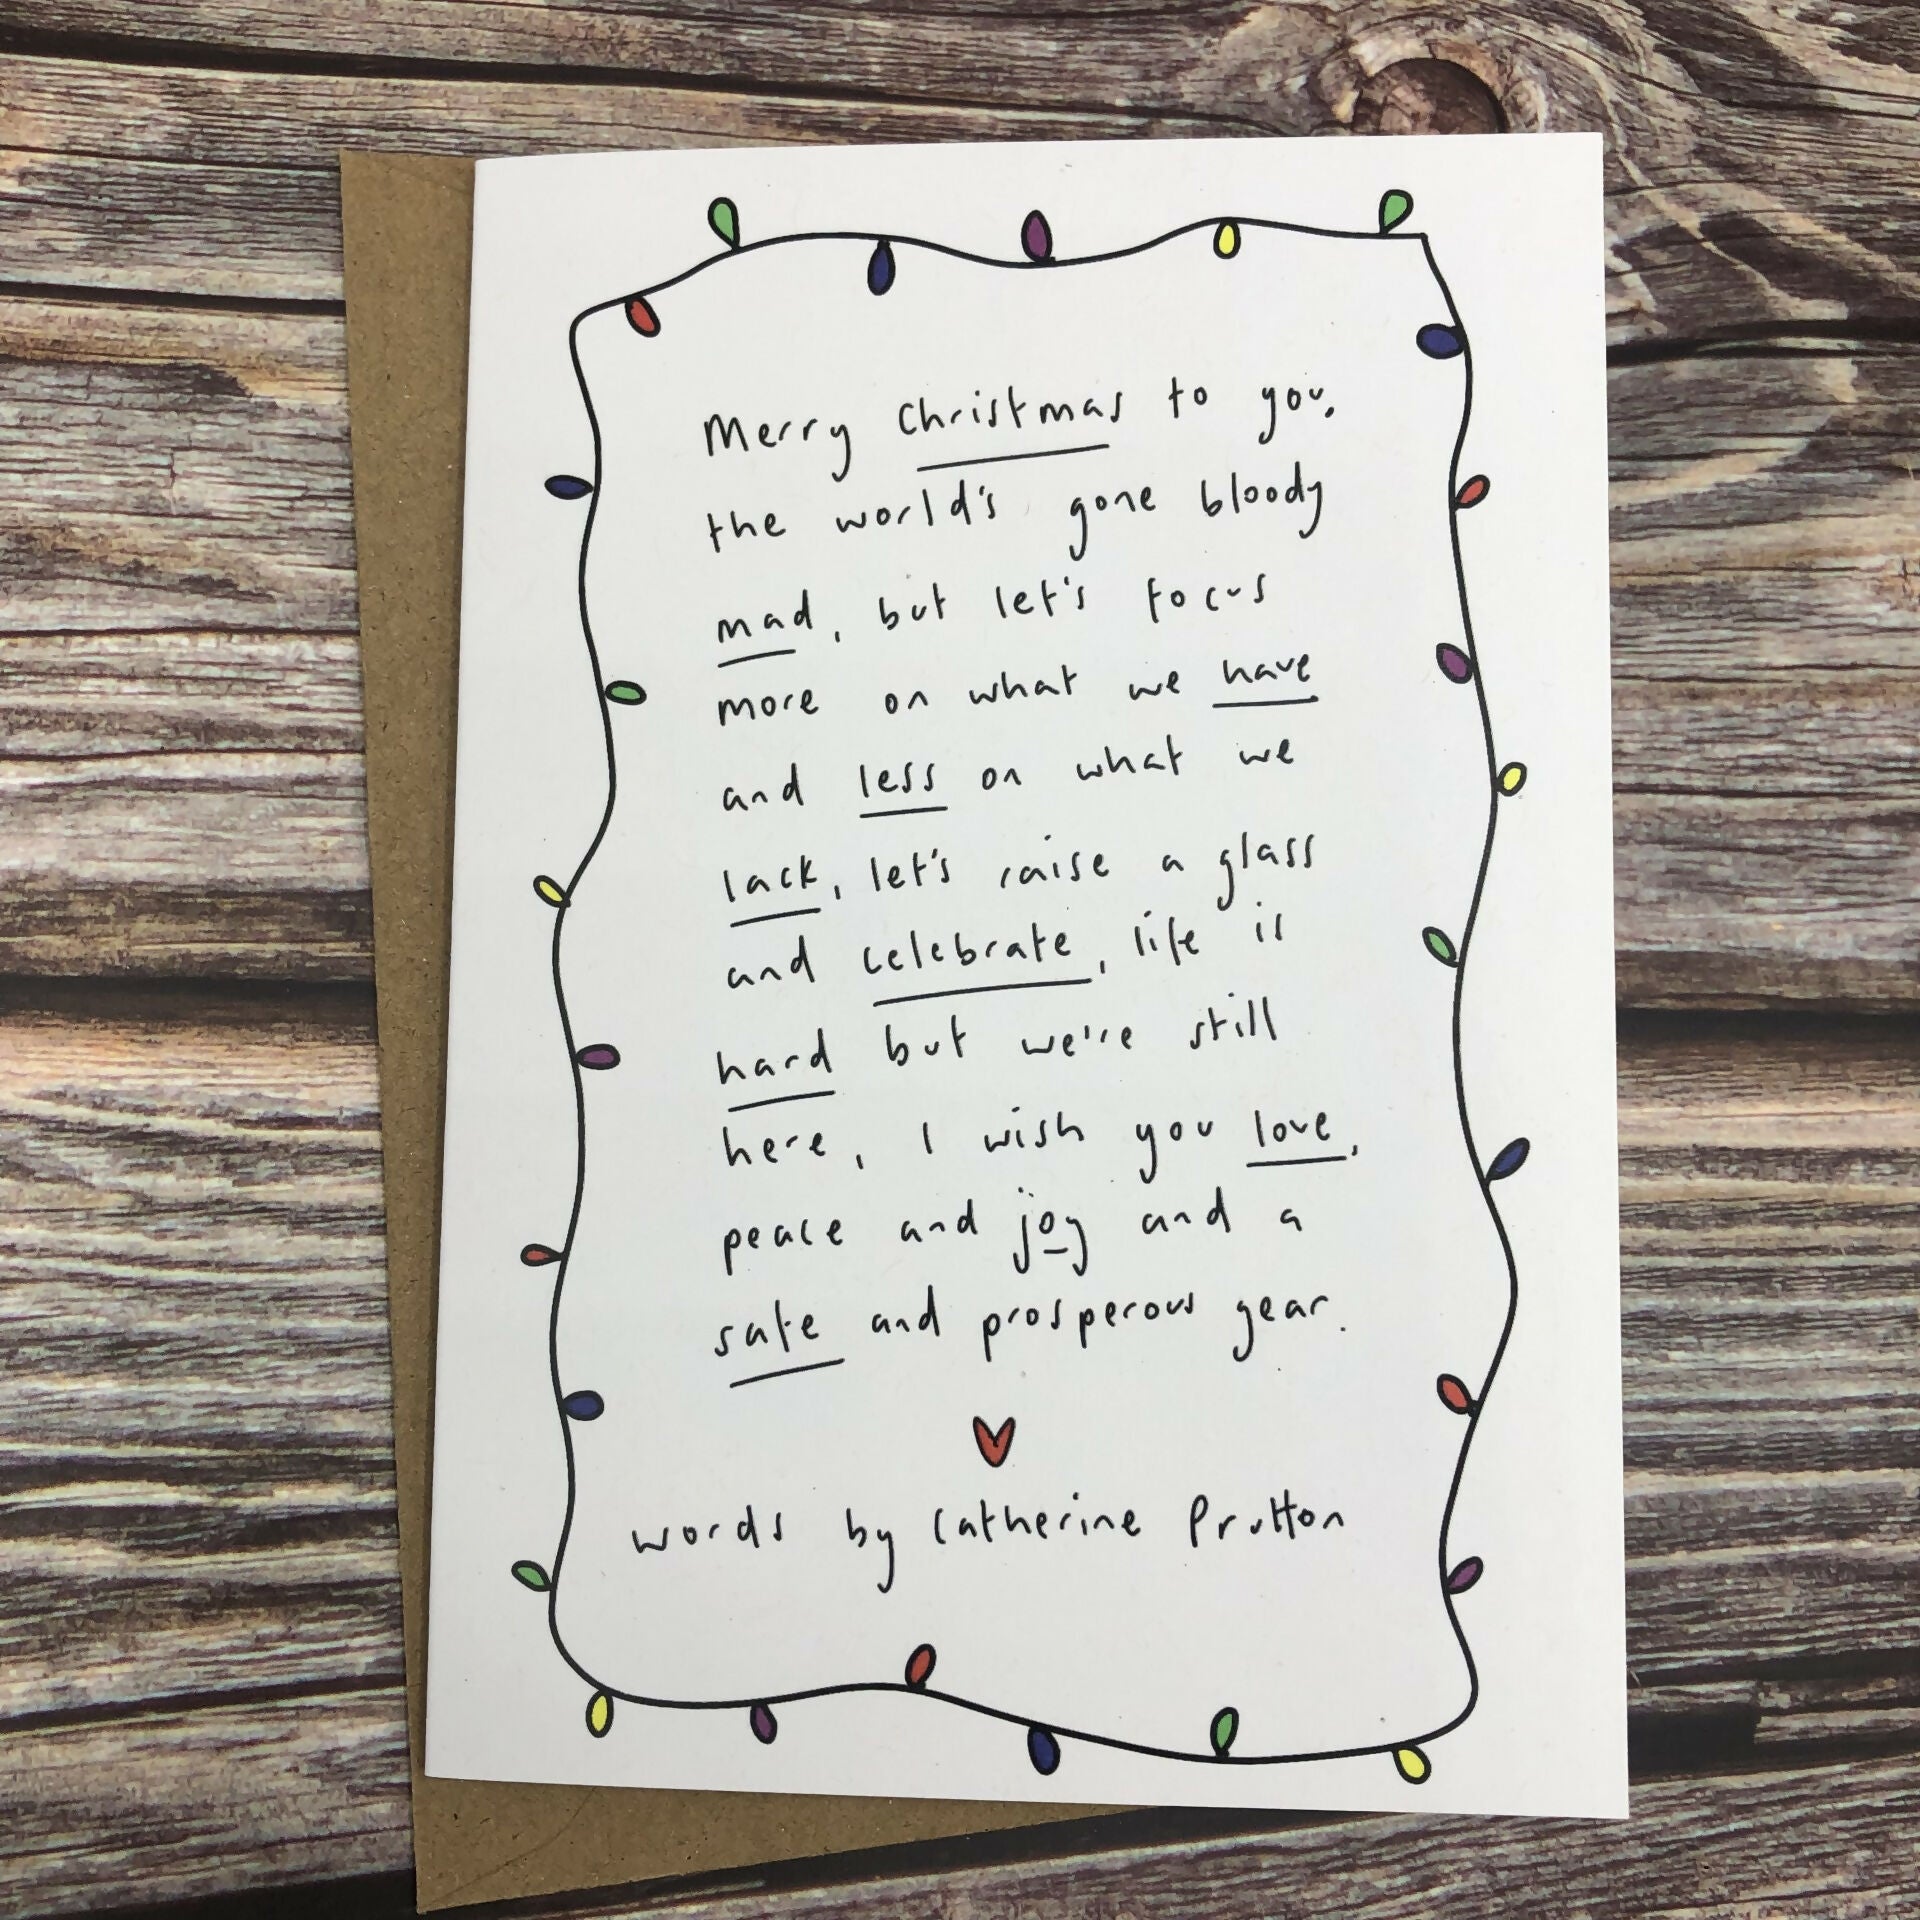 Merry Christmas to you,
the world's gone bloody
mad, but let's focus
more on what we have
and less on what we
lack, let's raise a glass
and celebrate, life is
hard but we're still
here, I wish you love,
peace and joy and a
safe and prosperous year.
words by Catherine Prutton